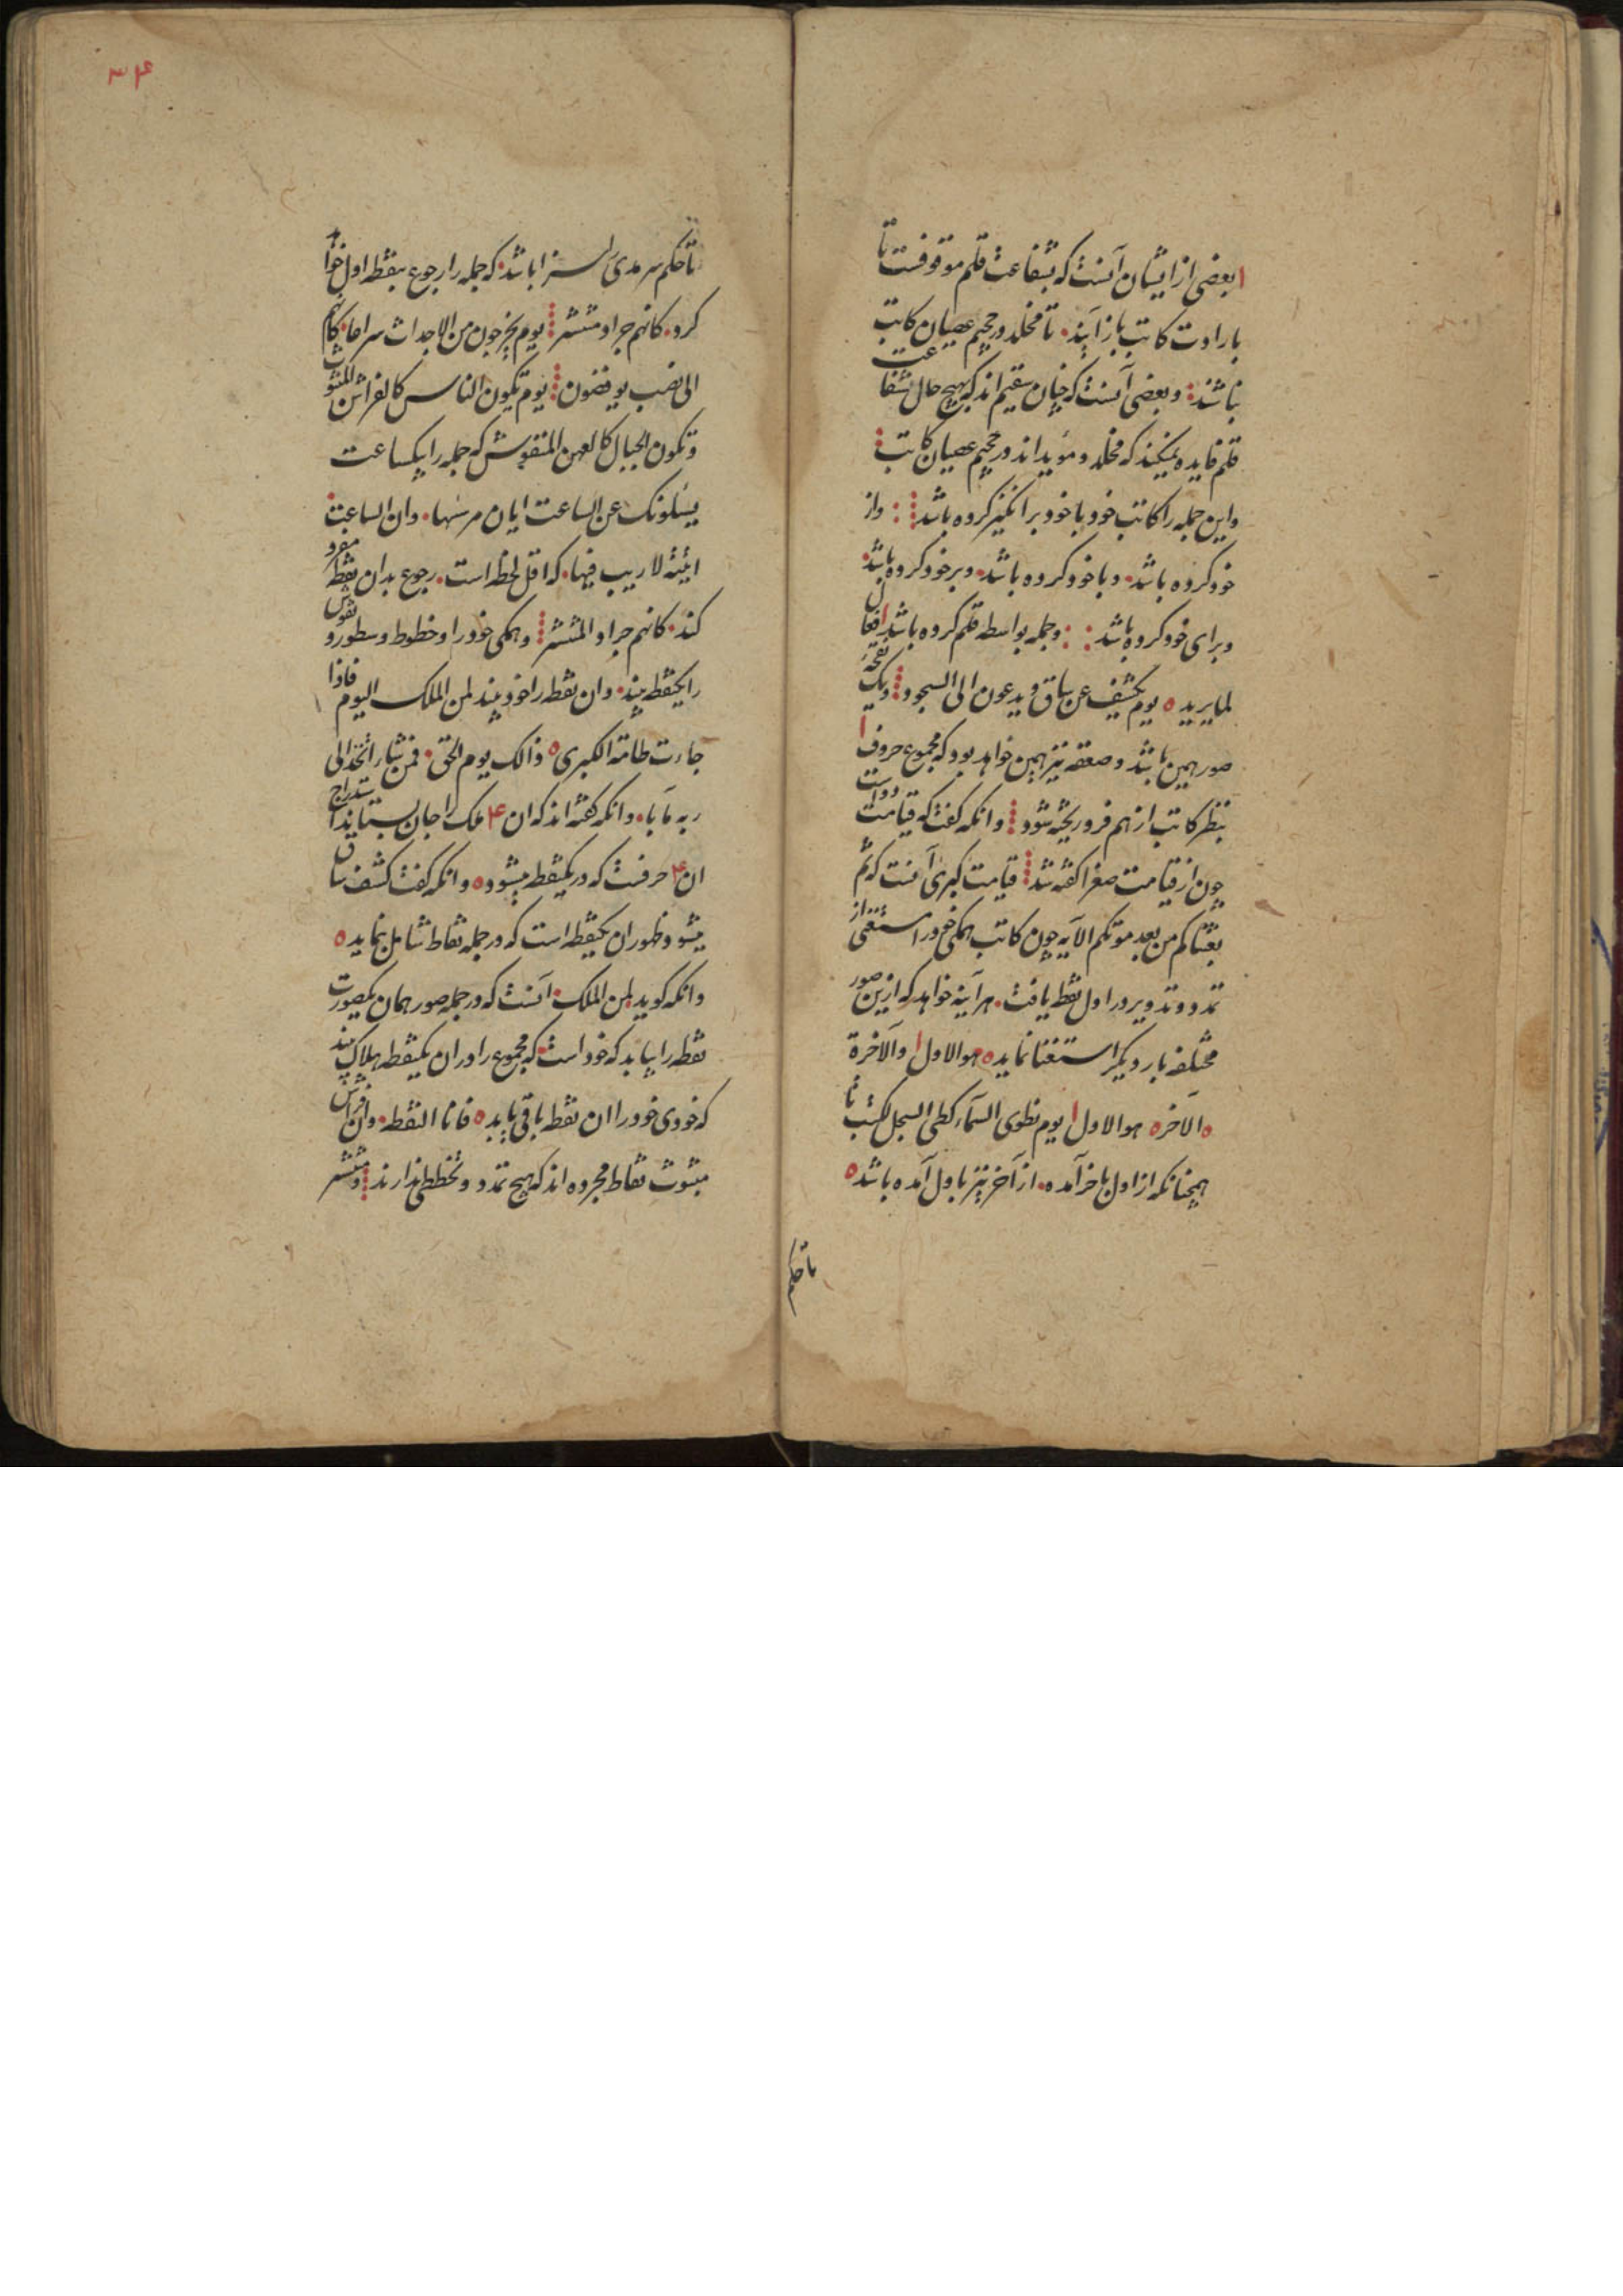 بعضی از ایشان آنست که بشفاعت قلم موقوفست تا
بارادت کاتب بازآیند۰ تا مخلد در جحیم عصیان کاتب
نباشند وبعضی آنست که چنان سقیم اند که بهیچ حال شفاعت
قلم فایده نمیکند که مخلد ومؤبد اند در جحیم عصیان کاتب
واین جمله را کاتب خود باخود برانگیز کرده باشد واز
خود کرده باشد۰ وبا خود کرده باشد۰ وبر خود کرده باشد
وبرای خود کرده باشد وجمله بواسطه قلم کرده باشد افعال
لما یرید ه یوم یکشف عن ساق ویدعون الی السجود ویک نفخهٔ
صور همین باشد وصعقه نیز همین خواهد بود که مجموع حروف ا
بنظر کاتب از هم فرو ریخته شود وانکه کفت که قیامت دواست
چون از قیامت صغرا کفته شد قیامت کبری آنست که ثم
بعثناکم من بعد موتکم الآیه چون کاتب همکی خود را مستغنی از
تمدد وتدویر در اول نقطه یافت۰ هرآینه خواهد که ازین صور
مختلفه بار دیکر استغنا نماید ه هوالاول ا والآخرة
ه الآخر ه هوالاول ا یوم نطوی السمآء کطی السجل لکتب تا
همچنانکه از اول باخر آمده۰ از آخر نیز باول آمده باشد ه
تا حکم
۳۴
تا حکم سرمدی را سزا باشد۰ که جمله را رجوع بنقطه اول خواهد
کرد۰ کانهم جراد منتشر یوم یخرجون من الاجداث سراعا۰ کانهم
الی نصب یوفضون یوم تکون الناس کالفراش المبثوث
وتکون الجبال کالعهن المنفوش که جمله را بیکساعت
یسٔلونک عن الساعت ایان مرسٰها۰ وان الساعت
اتیة لا ریب فیها۰ که اقل لحظه است۰ رجوع بدان نقطه مفرد
کند۰ کانهم جراد المنتشر وهمکی خود را وخطوط وسطور ونقوش
را یکنقطه بیند۰ وان نقطه را خود بیند لمن الملک الیوم فاذا
جاءت طامة الکبری ه ذالک یوم الحق۰ فمن شاء اتخذ الی
ربه مآبا۰ وانکه کفته اند که ان ۴ ملک را جان بستانند
ان ۴ حرفست که در یکنقطه میشود ه وانکه کفت کشف ساق
میشود ظهور ان یکنقطه است که در جمله نقاط شامل نماید ه
وانکه کوید لمن الملک۰ آنست که در جمله صور همان یکصورت
نقطه را بیابد که خود است۰ که مجموع را در ان یکنقطه هلاک بیند
که خودی خود را ان نقطه باقی یابد ه فانا النقطه۰ وان فراش
مبثوث نقاط مجرده اند که هیچ تمدد وتخططی ندارند ومنتشر